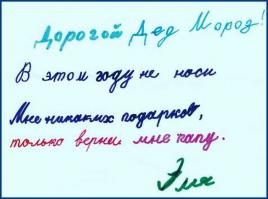 Дорогой Дед Мороз!
В этом году не носи
Мне никаких подарков,
только верни мне папу.
Эля